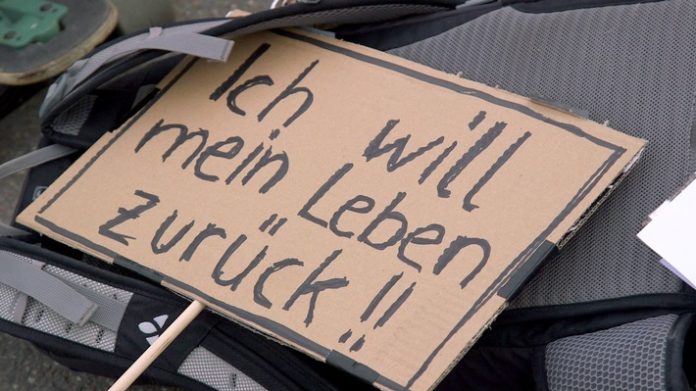 Ich will
mein Leben
zurück!!